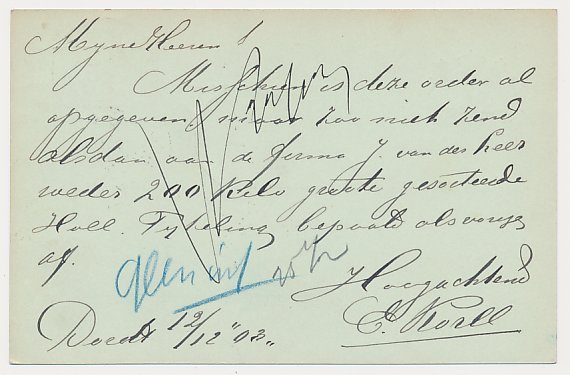 Myne Heeren!
Misschien is deze order al
opgegeven, maar zoo niet zend
alsdan aan de firma J. van der Heer
weder 200 Kilo groote gesorteerde
Holl. bepaald als vorige
af.
Hoogachtend
Dordt 12/12 "03"